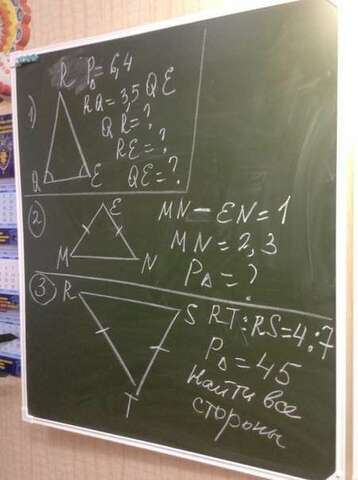 1)
R P△ = 6,4
RQ = 3,5 QE
QR = ?
RE = ?
QE = ?
Q E
2)
E
M N
MN - EN = 1
MN = 2,3
P△ = ?
3)
R S T
RT : RS = 4 : 7
P△ = 45
Найти все
стороны